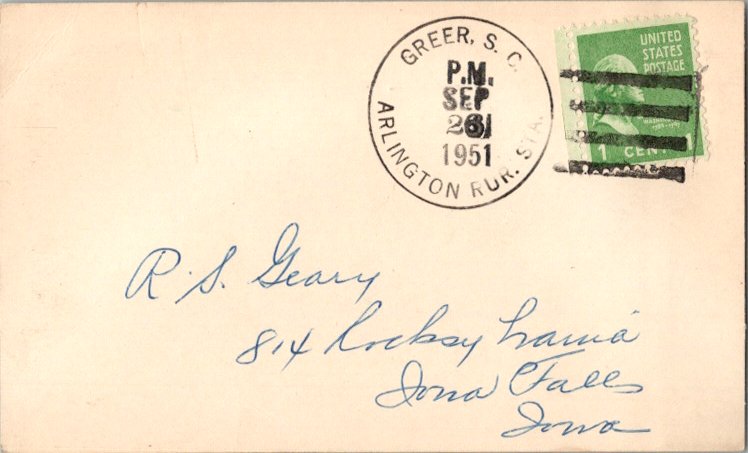 GREER, S. C.
P.M.
SEP
26
1951
ARLINGTON RUR. STA.
UNITED
STATES
POSTAGE
1 CENT 1
R. S. Geary
814
Iowa Falls
Iowa